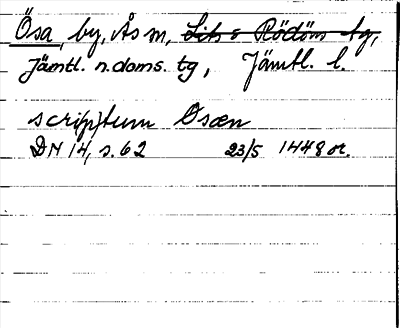 Ösa, by, Ås sn, Lits o Rödöns tg,
Jämtl. n. doms. tg, Jämtl. l.
scri(p)tum Osæn
DN 14, s. 62 23/5 1448 or.